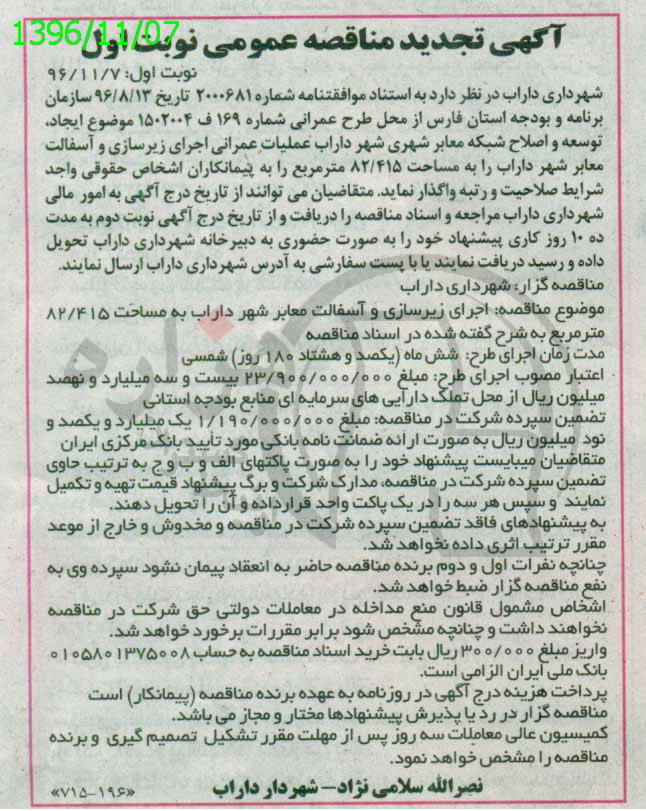 1396/11/07
آگهی تجدید مناقصه عمومی نوبت اول
نوبت اول: ۹۶/۱۱/۷
شهرداری داراب در نظر دارد به استناد موافقتنامه شماره ۲۰۰۰۶۸۱ تاریخ ۹۶/۸/۱۳ سازمان
برنامه و بودجه استان فارس از محل طرح عمرانی شماره ۱۶۹ ف ۱۵۰۲۰۰۴ موضوع ایجاد،
توسعه و اصلاح شبکه معابر شهری شهر داراب عملیات عمرانی اجرای زیرسازی و آسفالت
معابر شهر داراب را به مساحت ۸۲/۴۱۵ مترمربع را به پیمانکاران اشخاص حقوقی واجد
شرایط صلاحیت و رتبه واگذار نماید. متقاضیان می توانند از تاریخ درج آگهی به امور مالی
شهرداری داراب مراجعه و اسناد مناقصه را دریافت و از تاریخ درج آگهی نوبت دوم به مدت
ده ۱۰ روز کاری پیشنهاد خود را به صورت حضوری به دبیرخانه شهرداری داراب تحویل
داده و رسید دریافت نمایند یا با پست سفارشی به آدرس شهرداری داراب ارسال نمایند.
مناقصه گزار: شهرداری داراب
موضوع مناقصه: اجرای زیرسازی و آسفالت معابر شهر داراب به مساحت ۸۲/۴۱۵
مترمربع به شرح گفته شده در اسناد مناقصه
مدت زمان اجرای طرح: شش ماه (یکصد و هشتاد ۱۸۰ روز) شمسی
اعتبار مصوب اجرای طرح: مبلغ ۲۳/۹۰۰/۰۰۰/۰۰۰ بیست و سه میلیارد و نهصد
میلیون ریال از محل تملک دارایی های سرمایه ای منابع بودجه استانی
تضمین سپرده شرکت در مناقصه: مبلغ ۱/۱۹۰/۰۰۰/۰۰۰ یک میلیارد و یکصد و
نود میلیون ریال به صورت ارائه ضمانت نامه بانکی مورد تأیید بانک مرکزی ایران
متقاضیان میبایست پیشنهاد خود را به صورت پاکتهای الف و ب و ج به ترتیب حاوی
تضمین سپرده شرکت در مناقصه، مدارک شرکت و برگ پیشنهاد قیمت تهیه و تکمیل
نمایند و سپس هر سه را در یک پاکت واحد قرار داده و آن را تحویل دهند.
به پیشنهادهای فاقد تضمین سپرده شرکت در مناقصه و مخدوش و خارج از موعد
مقرر ترتیب اثری داده نخواهد شد.
چنانچه نفرات اول و دوم برنده مناقصه حاضر به انعقاد پیمان نشود سپرده وی به
نفع مناقصه گزار ضبط خواهد شد.
اشخاص مشمول قانون منع مداخله در معاملات دولتی حق شرکت در مناقصه
نخواهند داشت و چنانچه مشخص شود برابر مقررات برخورد خواهد شد.
واریز مبلغ ۳۰۰/۰۰۰ ریال بابت خرید اسناد مناقصه به حساب ۰۱۰۵۸۰۱۳۷۵۰۰۸
بانک ملی ایران الزامی است.
پرداخت هزینه درج آگهی در روزنامه به عهده برنده مناقصه (پیمانکار) است
مناقصه گزار در رد یا پذیرش پیشنهادها مختار و مجاز می باشد.
کمیسیون عالی معاملات سه روز پس از مهلت مقرر تشکیل تصمیم گیری و برنده
مناقصه را مشخص خواهد نمود.
نصرالله سلامی نژاد- شهردار داراب
«۷۱۵-۱۹۶»